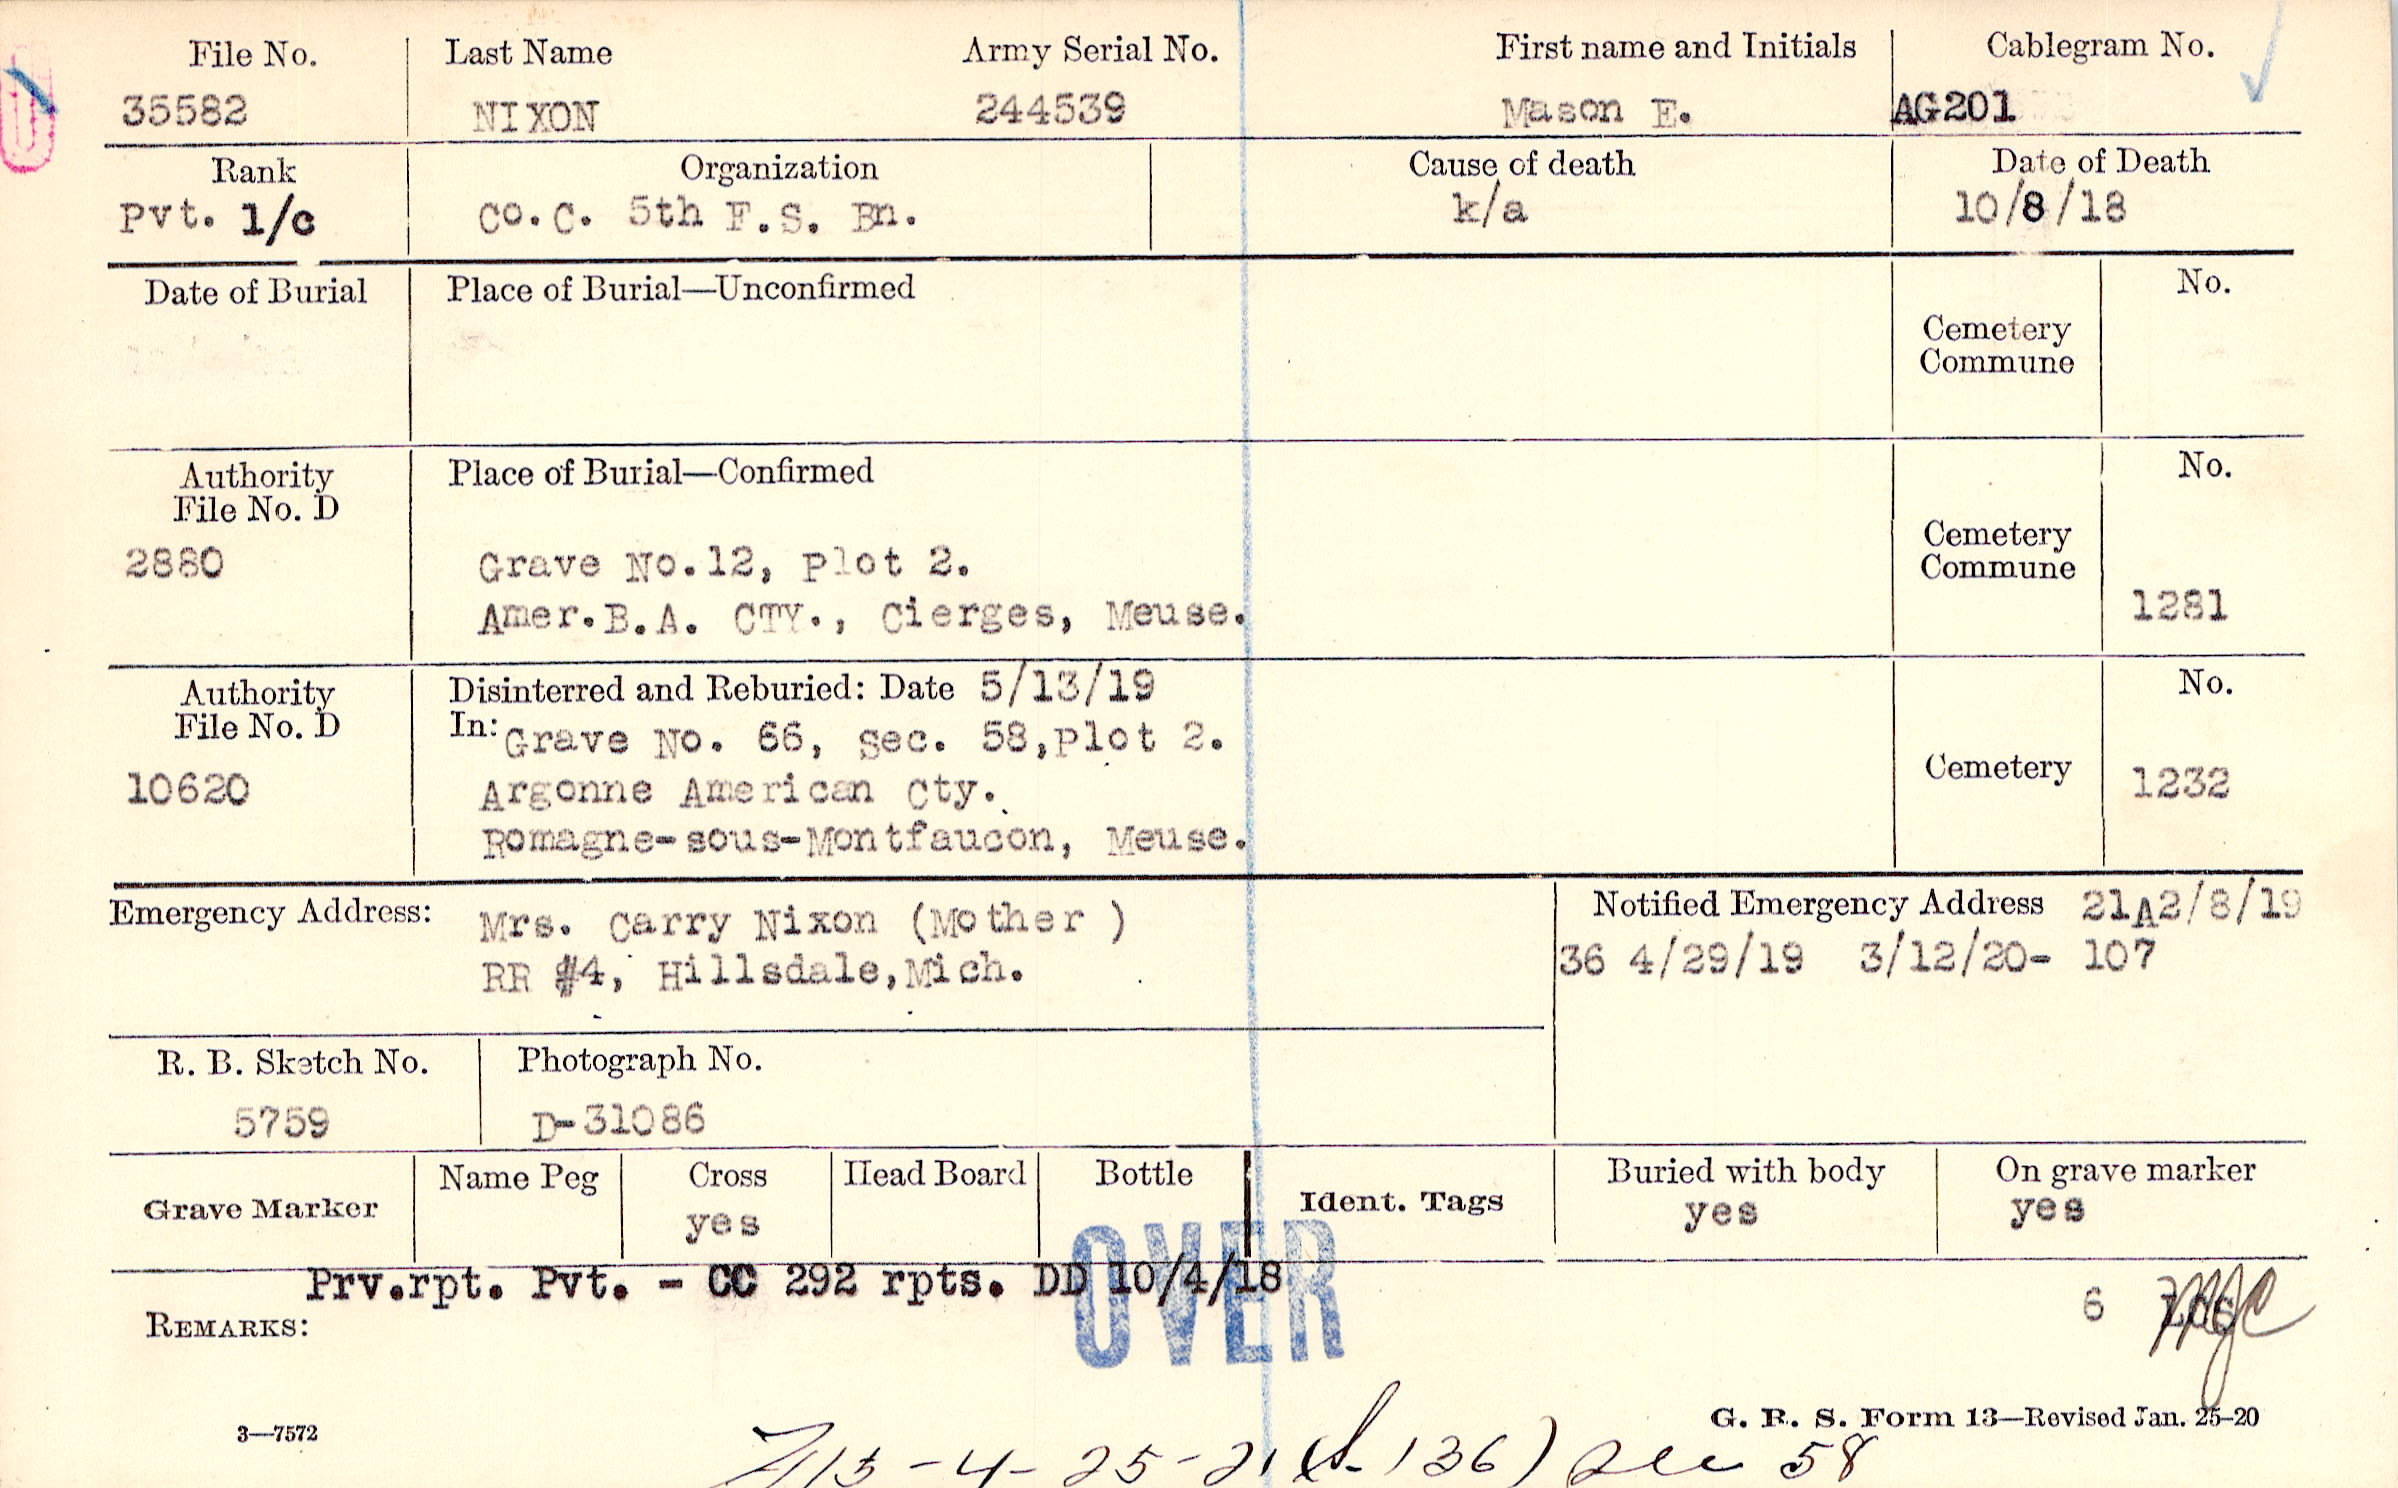 File No. Last Name Army Serial No. First name and Initials Cablegram No.
35582 NIXON 244539 Mason E. AG201
Rank Organization Cause of death Date of Death
Pvt. 1/c Co.C. 5th F.S. Bn. k/a 10/8/18
Date of Burial Place of Burial—Unconfirmed No.
Cemetery
Commune
Authority Place of Burial—Confirmed No.
File No. D
Cemetery
Commune
2880 Grave No.12, Plot 2.
Amer.B.A. CTY., Cierges, Meuse. 1281
Authority Disinterred and Reburied: Date 5/13/19 No.
File No. D In: Grave No. 66, Sec. 58,Plot 2.
Cemetery
10620 Argonne American Cty. 1232
Romagne-sous-Montfaucon, Meuse.
Emergency Address: Mrs. Carry Nixon (Mother ) Notified Emergency Address 21A2/8/19
RR #4, Hillsdale,Mich. 36 4/29/19 3/12/20- 107
R. B. Sketch No. Photograph No.
5759 D-31086
Grave Marker Name Peg Cross Head Board Bottle Ident. Tags Buried with body On grave marker
yes yes yes
Prv.rpt. Pvt. - CC 292 rpts. DD 10/4/18
OVER
REMARKS: 6
3—7572 G. R. S. Form 13—Revised Jan. 25-20
-4-25-21 136) Sec 58